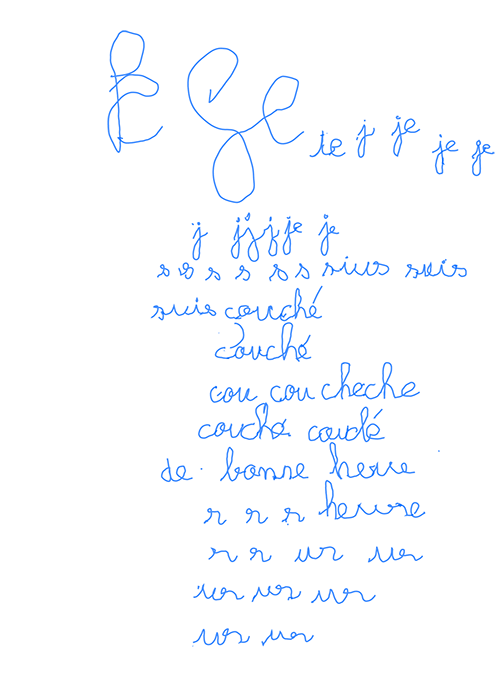 te j je je je
j j j j je je
s s s s s s sius suis
suis couché
couché
cou coucheche
couché coudé
de bonse heue
r r r heurse
r r ur ur
ur ur ur
ur ur